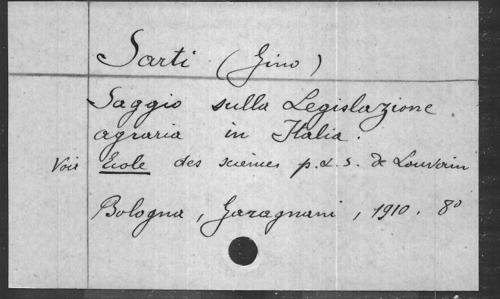 Sarti (Gino)
Saggio sulla Legislazione
agraria in Italia.
Voir Ecole des sciences p. & s. de Louvain
Bologna, Garagnani, 1910. 8º